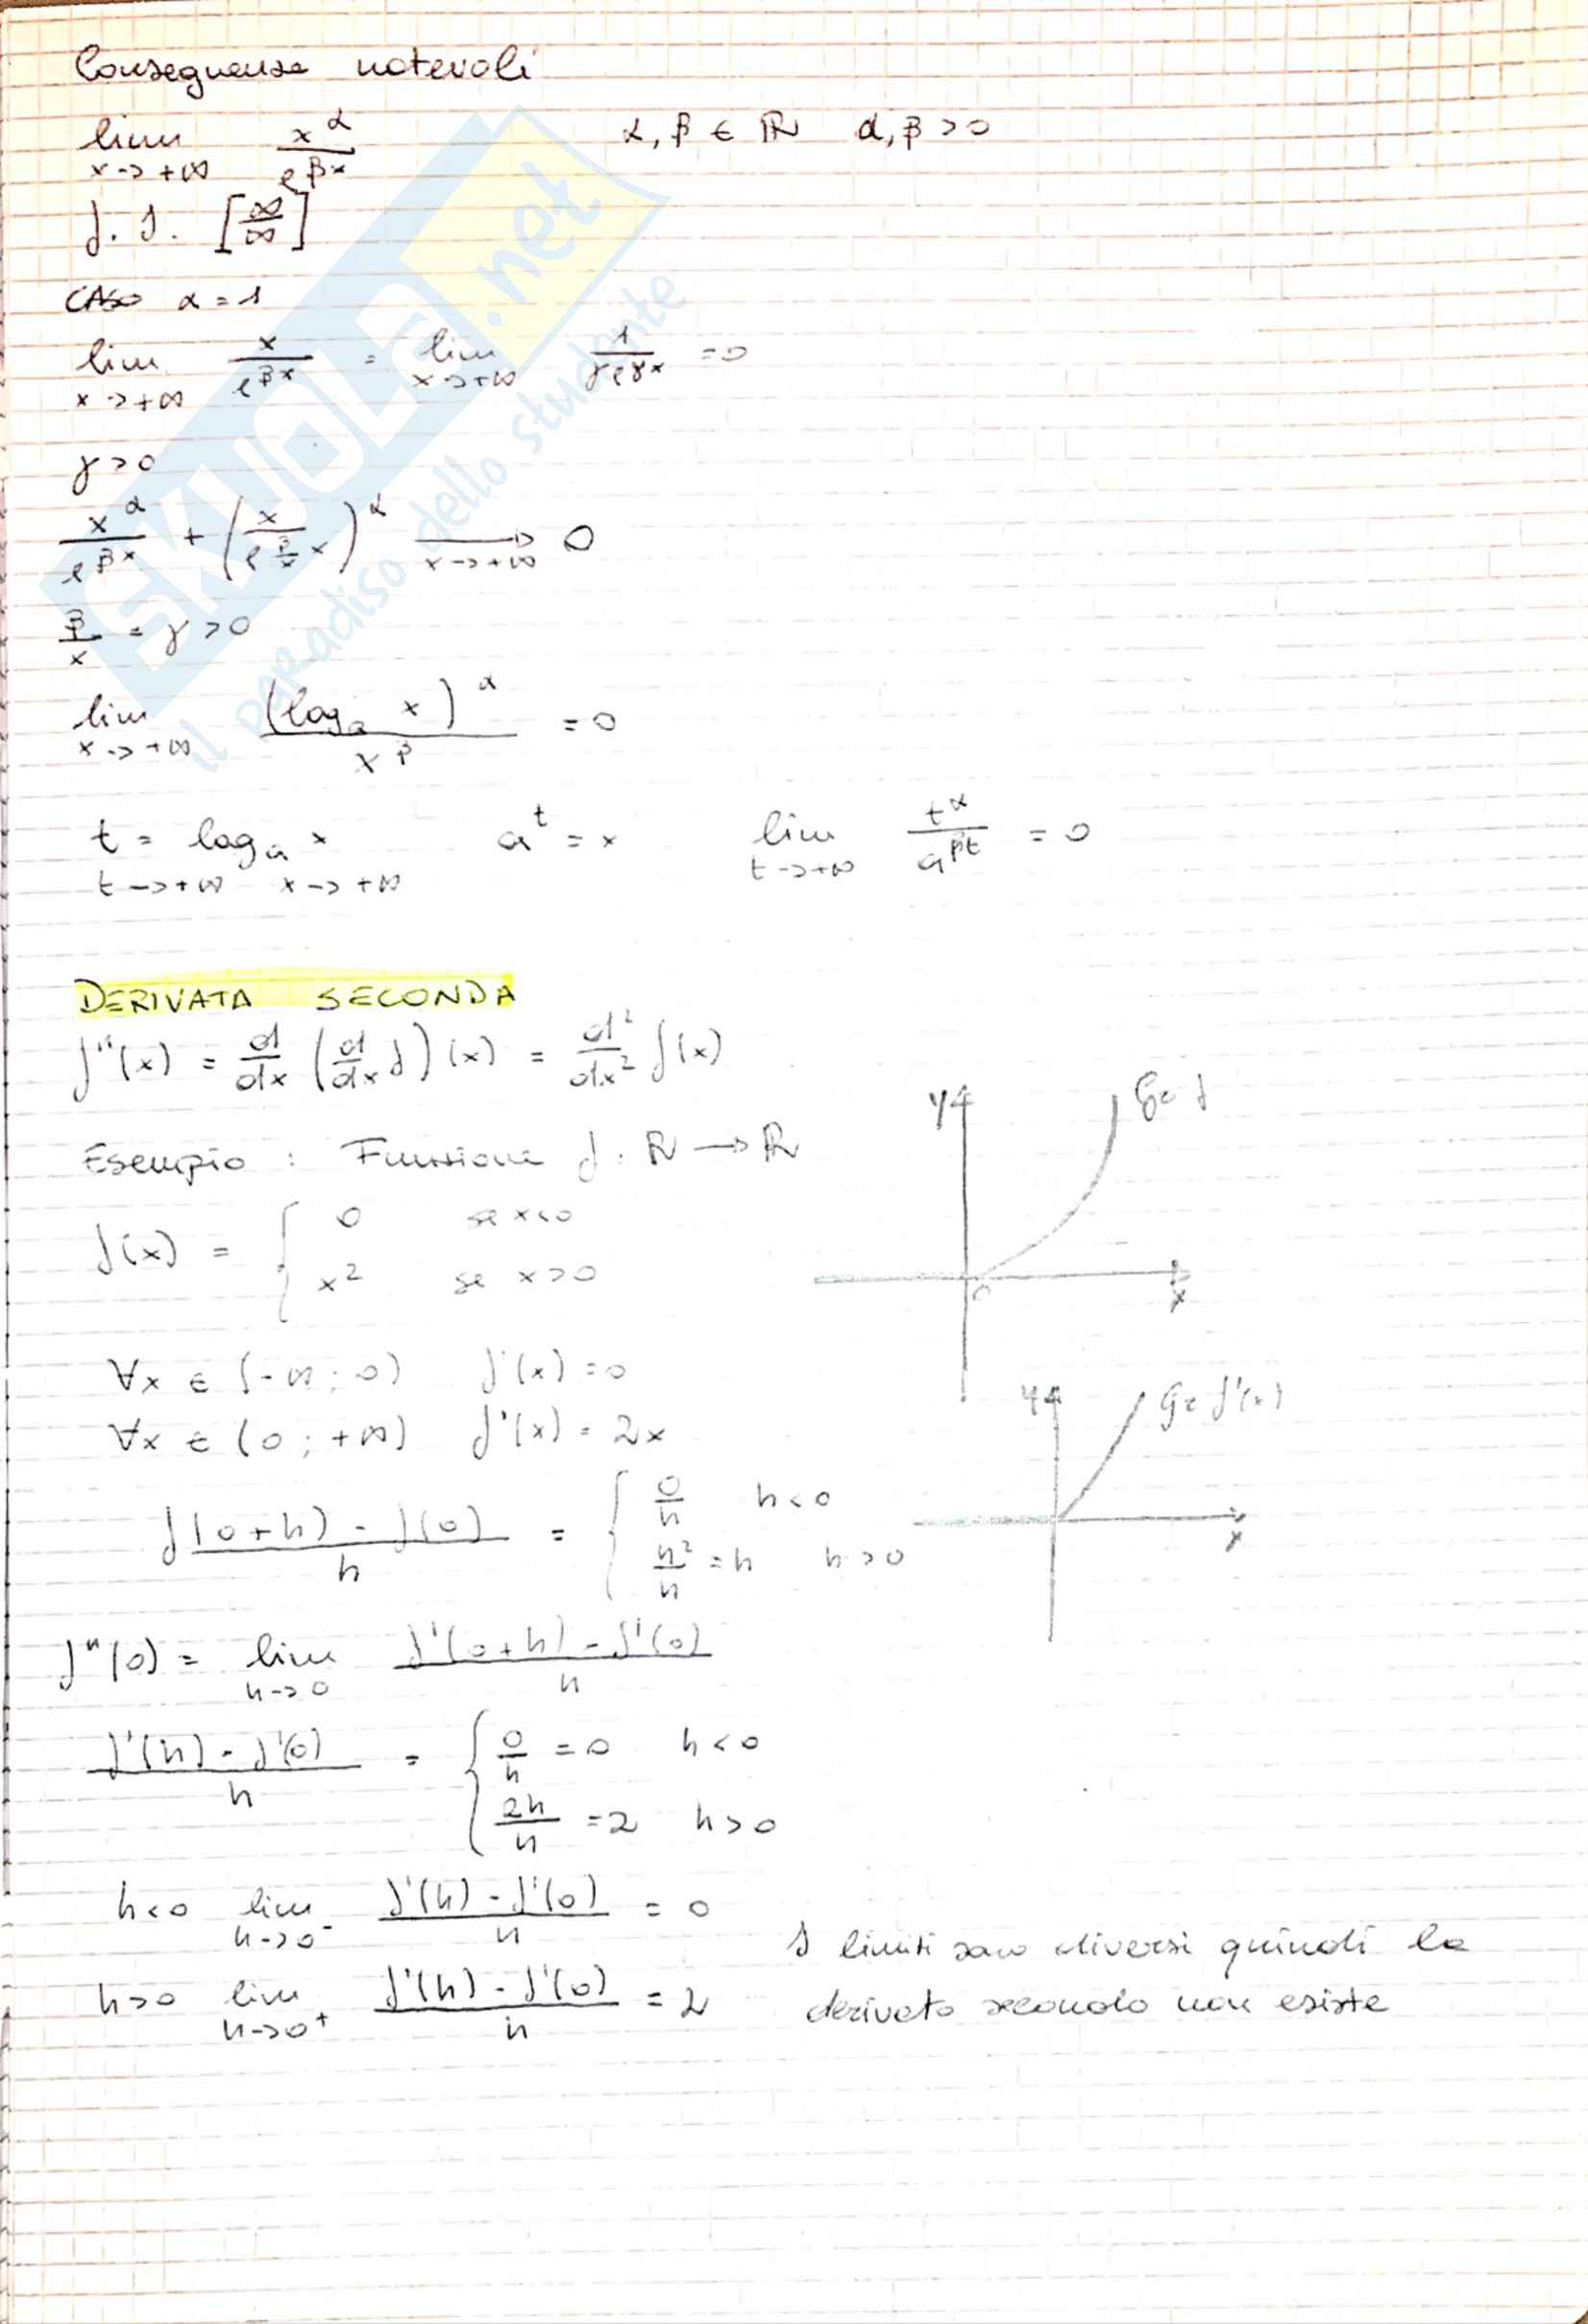 Conseguenze notevoli
lim x→+∞ x^α / e^βx    α, β ∈ ℝ    α, β > 0
f. I. [∞/∞]
CASO α = 1
lim x→+∞ x / e^βx = lim x→+∞ 1 / γe^γx = 0
γ > 0
x^α / e^βx + (x / e^(β/x)x)^α → x→+∞ 0
β/x = γ > 0
lim x→+∞ (log_a x)^α / x^β = 0
t = log_a x    a^t = x    lim t→+∞ t^α / a^βt = 0
t→+∞    x→+∞
DERIVATA SECONDA
f''(x) = d/dx (d/dx f)(x) = d²/dx² f(x)
y    Gr f
Esempio : Funzione f : ℝ → ℝ
f(x) = { 0    se x<0
x²    se x>0
0    x
∀x ∈ (-∞ ; 0)    f'(x) = 0
y    Gr f'(x)
∀x ∈ (0 ; +∞)    f'(x) = 2x
f(0+h) - f(0) / h = { 0/h    h<0
h²/h = h    h>0
x
f''(0) = lim h→0 f'(0+h) - f'(0) / h
f'(h) - f'(0) / h = { 0/h = 0    h<0
2h/h = 2    h>0
h<0    lim h→0⁻ f'(h) - f'(0) / h = 0
h>0    lim h→0⁺ f'(h) - f'(0) / h = 2
I limiti sono diversi quindi la
derivata seconda non esiste
SKUOLA.net
il paradiso dello studente